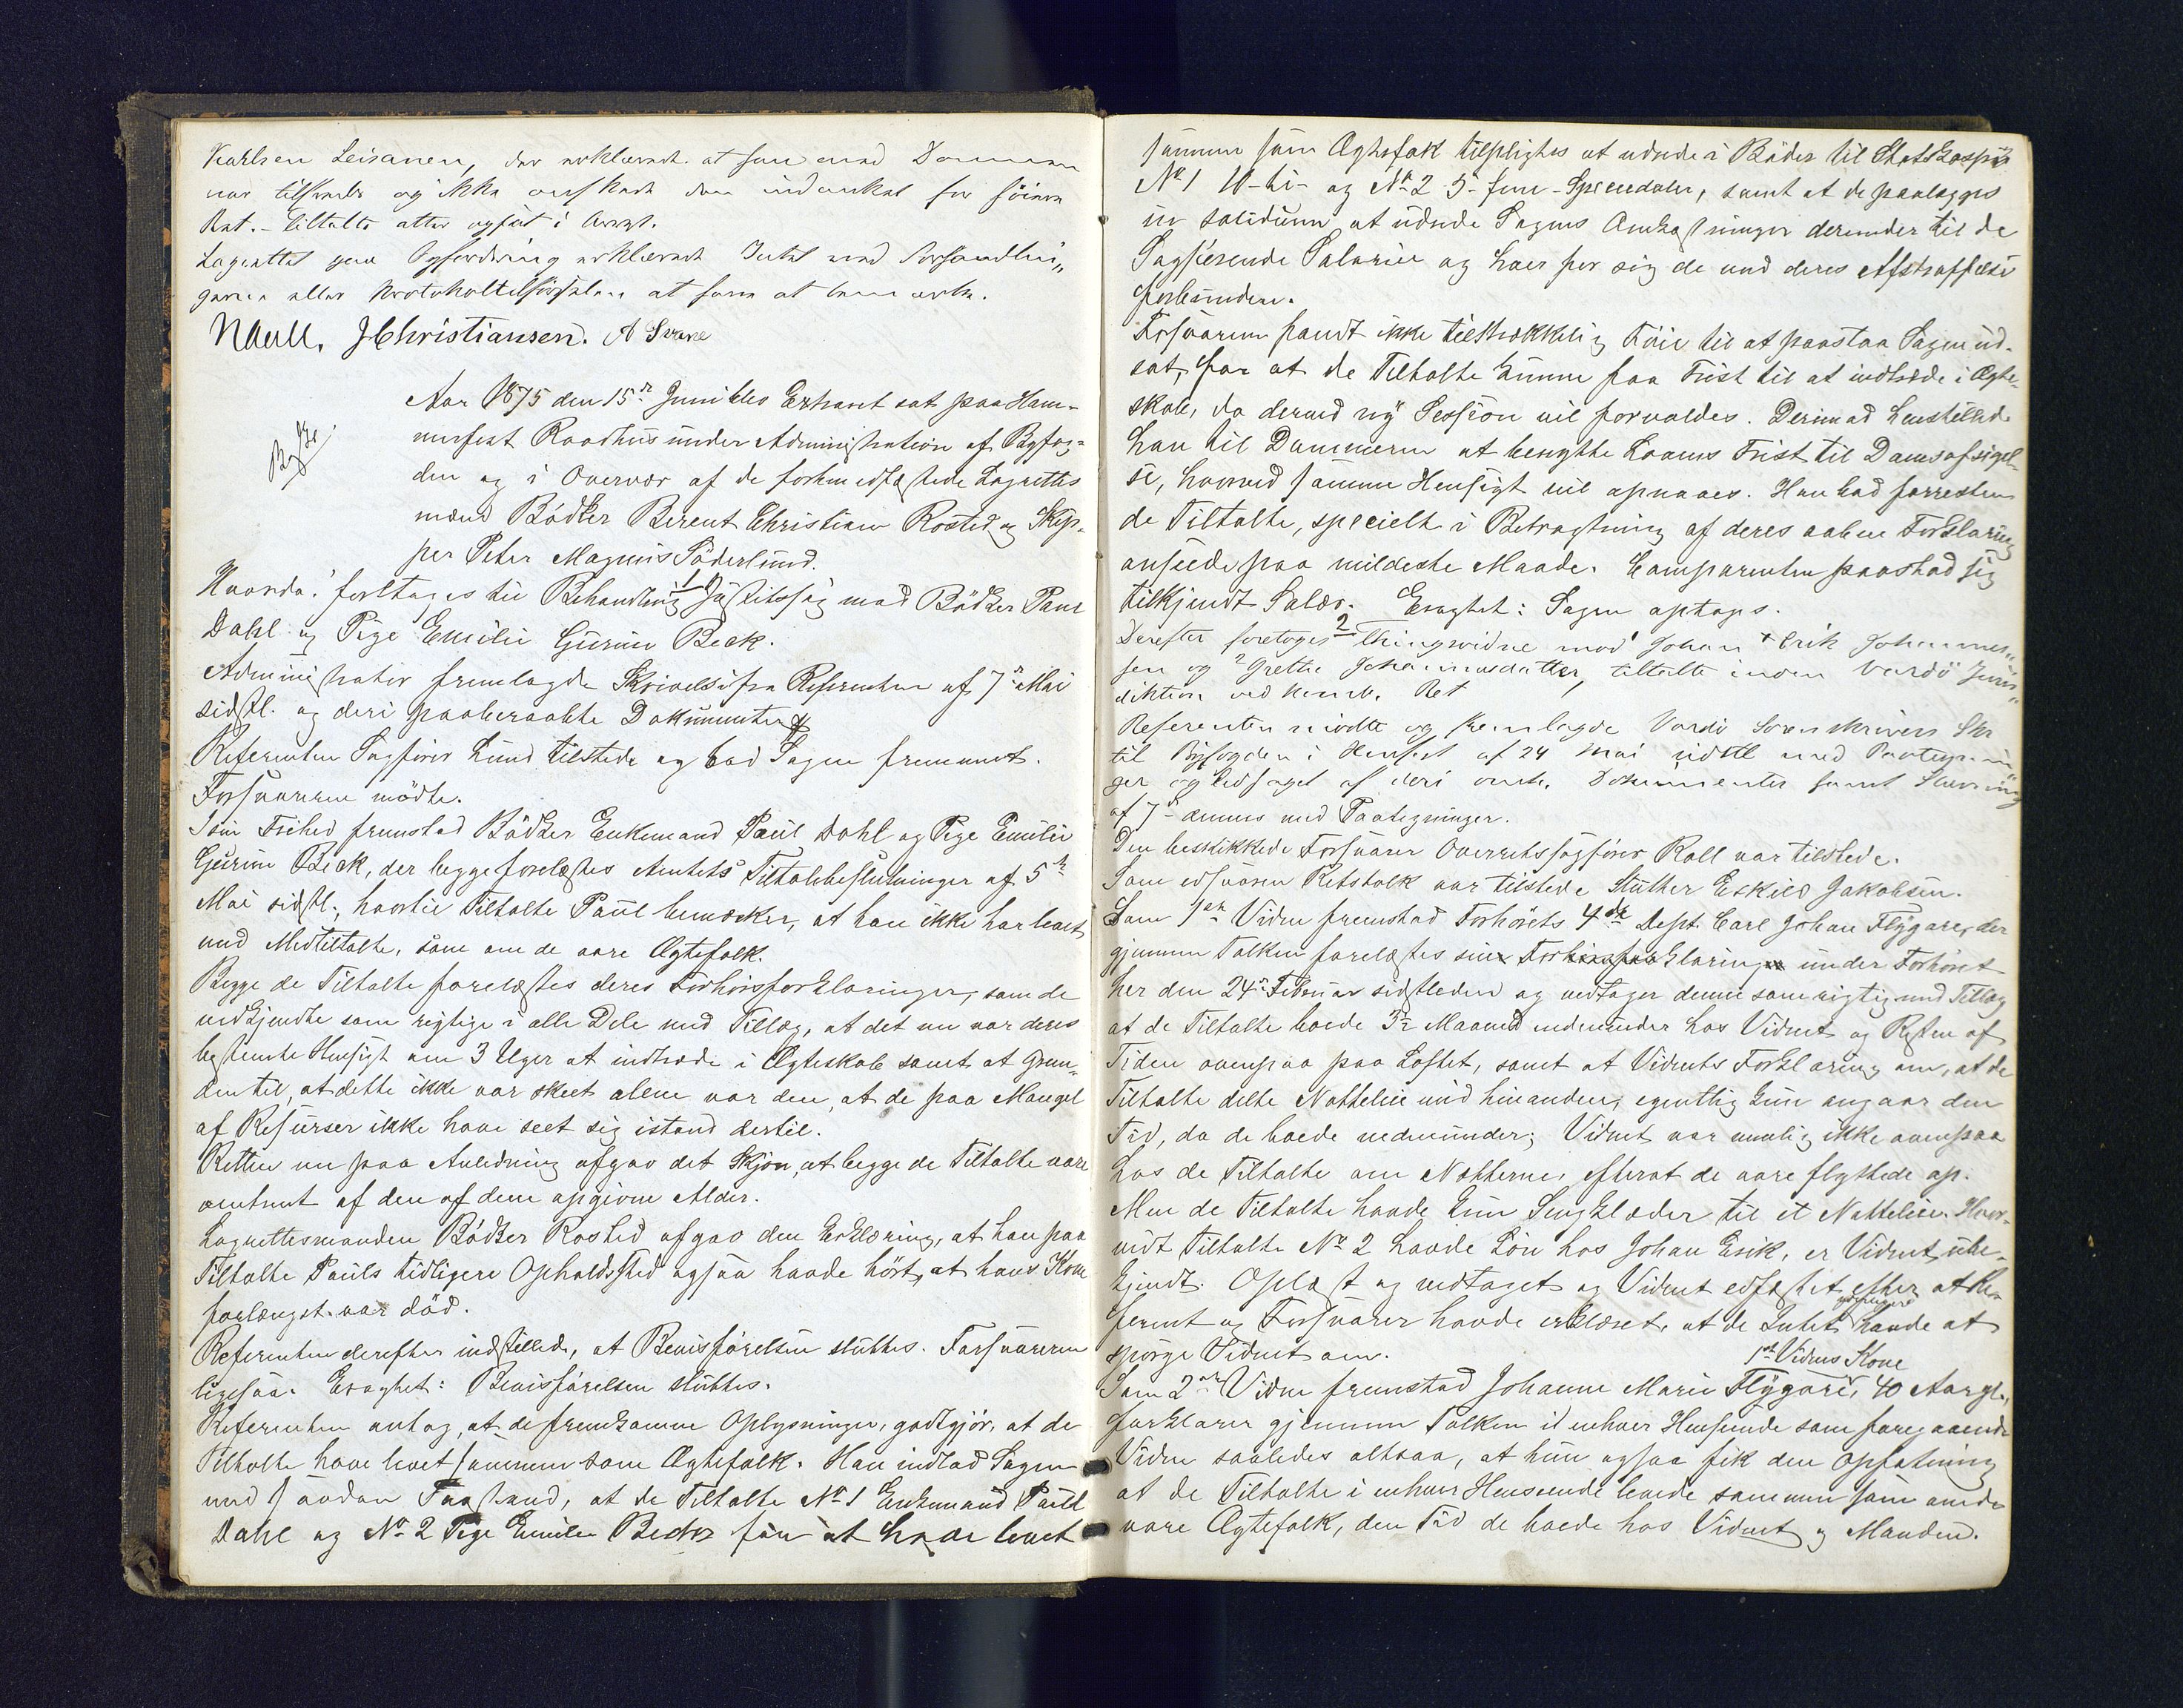 Karlsen Leisanen, der erklærede at han med Dommen
var tilfreds og ikke ønskede den indanket for höiere
Ret. - Tiltalte atter afført i Arrest.
Lagrettet paa Opfordring erklærede Intet ved Forhandlin„
garne eller Protokoltilførslen at have at bemærke.
NAall. JChristiansen. A Svane
Aar 1875 den 15de Juni blev Extraret sat paa Ham-
merfest Raadhus under Administration af Byfog-
den og i Overvær af de forhen edfæstede Lagrettes
mænd Bödker Berent Christian Rosted og Skip-
per Peter Magnus Söderlund.
Hvorda! foretoges til Behandling 1) Justitssag mod Bödker Paul
Dahl og Pige Emilie Gurine Beck.
Administrator fremlagde Skrivelse fra Referenten af 7de Mai
sidstl. og deri paaberaabte Dokumenter
Referenten Sagförer Lund tilstede og bad Sagen fremmet.
Forsvareren mödte.
I sin Frihed fremstod Bödker Enkemand Paul Dahl og Pige Emilie
Gurine Beck, der begge forelæstes Amtets Tiltalebeslutninger af 5te
Mai sidstl., hvortil Tiltalte Paul bemærker, at han ikke har levet
med Medtiltalte, som om de vare Ægtefolk.
Begge de Tiltalte forelæstes deres Forhörsforklaringer, som de
vedkjendte som rigtige i alle Dele med Tillæg, at det nu var deres
bestemte Hensigt om 3 Uger at indtræde i Ægteskab samt at Grun-
den til, at dette ikke var skeet alene var den, at de paa Mangel
af Resurser ikke have seet sig istand dertil.
Retten nu paa Anledning afgav det Skjön, at begge de Tiltalte vare
omtrent af den af dem opgivne Alder.
Lagrettesmanden Bödker Rosted afgav den Erklæring, at han paa
Tiltalte Pauls tidligere Opholdssted ogsaa havde hört, at hans Kone
forlængst var död.
Referenten derefter indstillede, at Bevisförelsen sluttes. Forsvareren
ligesaa. Eragtet: Bevisförelsen sluttes.
Referenten antog, at de fremkomne Oplysninger, godtgjör, at de
Tiltalte have levet sammen som Ægtefolk. Han indlod Sagen
med saadan Paastand, at de Tiltalte No 1 Enkemand Paul
Dahl og No 2 Pige Emilie Beck for at have levet
sammen som Ægtefolk tilpligtes at udrede i Böder til Statskassen
No 1 10-ti- og No 2 5-fem-Speciedaler, samt at de paalægges
in solidum at udrede Sagens Omkostninger derunder til de
Sagförende Salarier og hver for sig de med deres Afstraffelse
forbundne.
Forsvareren fandt ikke tilstrækkelig Föie til at paastaa Sagen ud-
sat, for at de Tiltalte kunne faa Frist til at indtræde i Ægte-
skab, da derved ny Session vil forvoldes. Derimod henstillede
han til Dommeren at benytte Lovens Frist til Domsafsigel-
se, hvorved samme Hensigt vil opnaaes. Han bad forresten
de Tiltalte, specielt i Betragtning af deres aabne Forklaring
anseede paa mildeste Maade. Comparenten paastod sig
tilkjendt Salær. Eragtet: Sagen optages.
Derefter foretoges 2 Thingsvidne mod 1 Johan Erik Johannes„
sen og 2 Grethe Johannesdatter, tiltalte inden Vardö Juris„
diktion ved Ret
Referenten mödte og fremlagde Vardö Sorenskrivers Skr
til Byfogden i Hmfest af 24 Mai sidstl med Paategnin
ger og ledsaget af deri omh. Dokumenter samt Stævning
af 7de dennes med Paategninger.
Den beskikkede Forsvarer Overretssagförer Roll var tilstede.
Som edsvoren Retstolk var tilstede Slutter Eskild Jakobsen.
Som 1ste Vidne fremstod Forhörets 4de Dept. Carl Johan Flygare, der
gjennem Tolken forelæstes sin Forklaring under Forhöret
her den 24de Februar sidstleden og vedtager denne som rigtig med Tillæg
at de Tiltalte boede 3½ Maaned nedenunder hos Vidnet og Resten af
Tiden ovenpaa paa Loftet, samt at Vidnets Forklaring om, at de
Tiltalte delte Natteleie med hinanden, egentlig kun angaar den
Tid, da de boede nedenunder; Vidnet var nemlig ikke ovenpaa
hos de Tiltalte om Nætterne, efterat de vare flyttede op.
Men de Tiltalte havde kun Sengklæder til et Natteleie. Hvor-
vidt Tiltalte No 2 havde Lön hos Johan Erik, er Vidnet ube-
kjendt. Oplæst og vedtaget og Vidnet edfæstet efter at Re-
ferent og Forsvarer havde erklæret, at de Intet yderligere havde at
spörge Vidnet om.
Som 2det Vidne fremstod Johanne Marie Flygare, 1ste Vidnes Kone 40 Aar gl.,
forklarer gjennem Tolken i enhver Henseende som foregaaende
Vidne saaledes altsaa, at hun ogsaa fik den Opfatning
at de Tiltalte i enhver Henseende levede sammen som om de
vare Ægtefolk, den Tid de boede hos Vidnet og Manden.